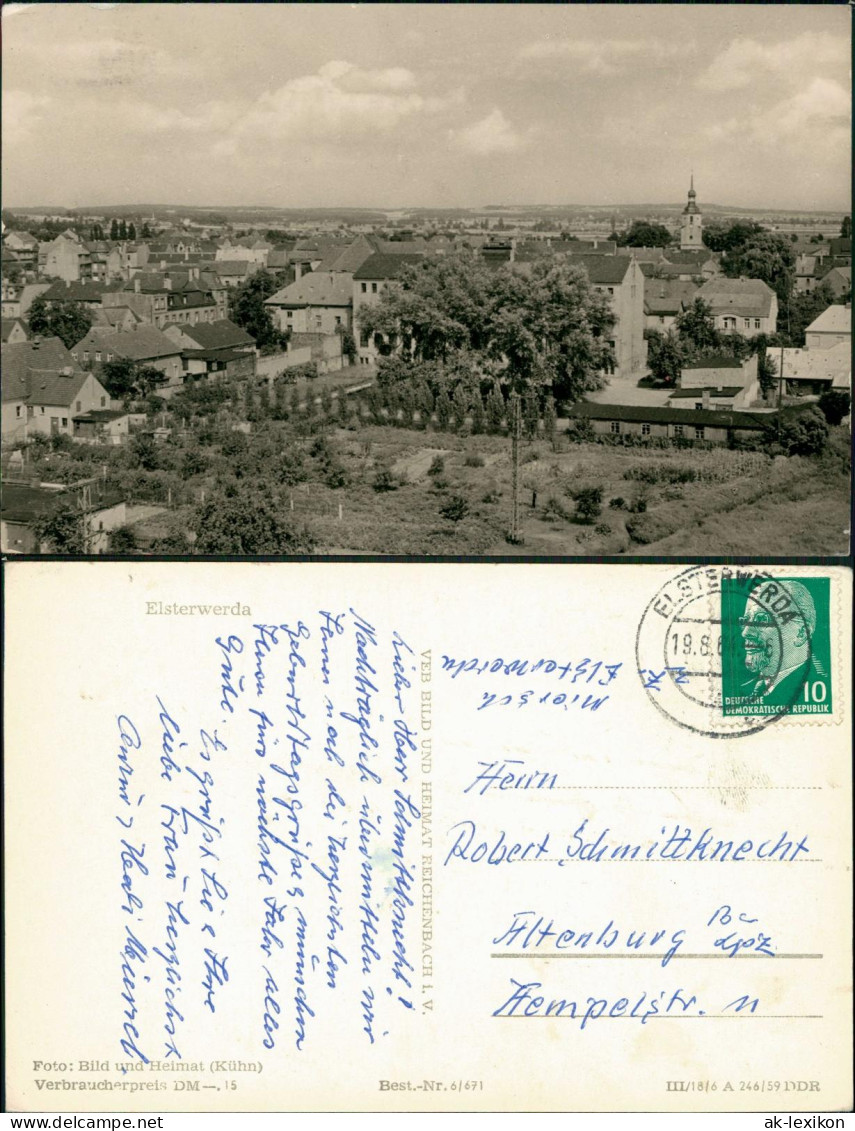 Elsterwerda
Lieber Herr Schmittknecht!
Nachträglich übermitteln wir
Ihnen noch die herzlichsten
Geburtstagsgrüße & wünschen
Ihnen fürs nächste Jahr alles
Gute.
Es grüßt Sie & Ihre
liebe Frau herzlichst
VEB BILD UND HEIMAT REICHENBACH i. V.
Miersch
Elsterwerda
ELSTERWERDA
10
DEUTSCHE
DEMOKRATISCHE REPUBLIK
Herrn
Robert Schmittknecht
Altenburg
Hempelstr. 11
Foto: Bild und Heimat (Kühn)
Verbraucherpreis DM —,15
Best.-Nr. 6/671
III/18/6 A 246/59 DDR
ak-ansichtskarten.de
ak-lexikon.com